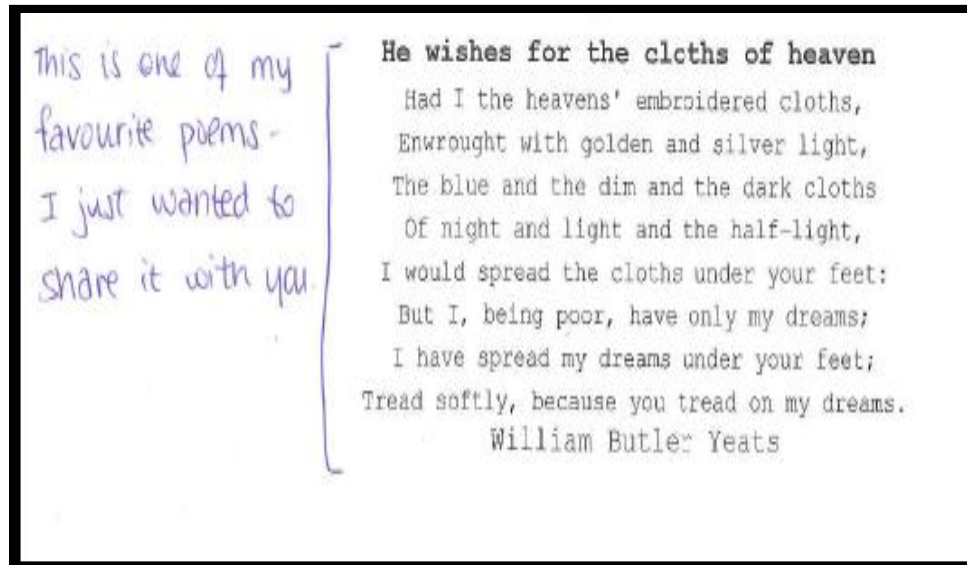 This is one of my
favourite poems -
I just wanted to
share it with you.
He wishes for the cloths of heaven
Had I the heavens' embroidered cloths,
Enwrought with golden and silver light,
The blue and the dim and the dark cloths
Of night and light and the half-light,
I would spread the cloths under your feet:
But I, being poor, have only my dreams;
I have spread my dreams under your feet;
Tread softly, because you tread on my dreams.
William Butler Yeats